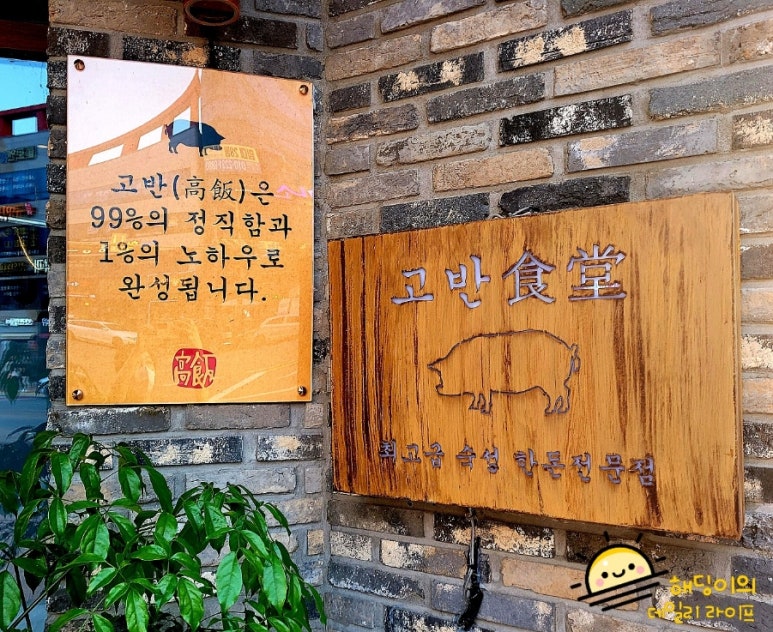 고반(高飯)은
99%의 정직함과
1%의 노하우로
완성됩니다.
高飯
고반食堂
최고급 숙성 한돈전문점
해딩이의
데일리 라이프